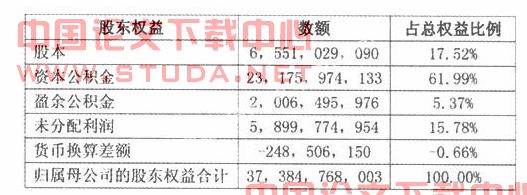 中国论文下载中心
WWW.STUDA.NET
股东权益 数额 占总权益比例
股本 6,551,029,090 17.52%
资本公积金 23,175,974,133 61.99%
盈余公积金 2,006,495,976 5.37%
未分配利润 5,899,774,954 15.78%
货币换算差额 -248,506,150 -0.66%
归属母公司的股东权益合计 37,384,768,003 100.00%
中国论文下载中心